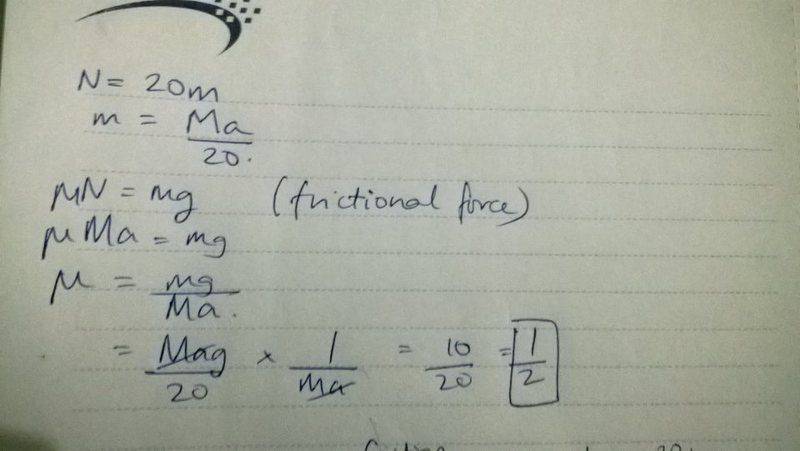 N = 20m
m = Ma/20.
μN = mg (frictional force)
μMa = mg
μ = mg/Ma.
= Mag/20 × 1/Ma = 10/20 = 1/2